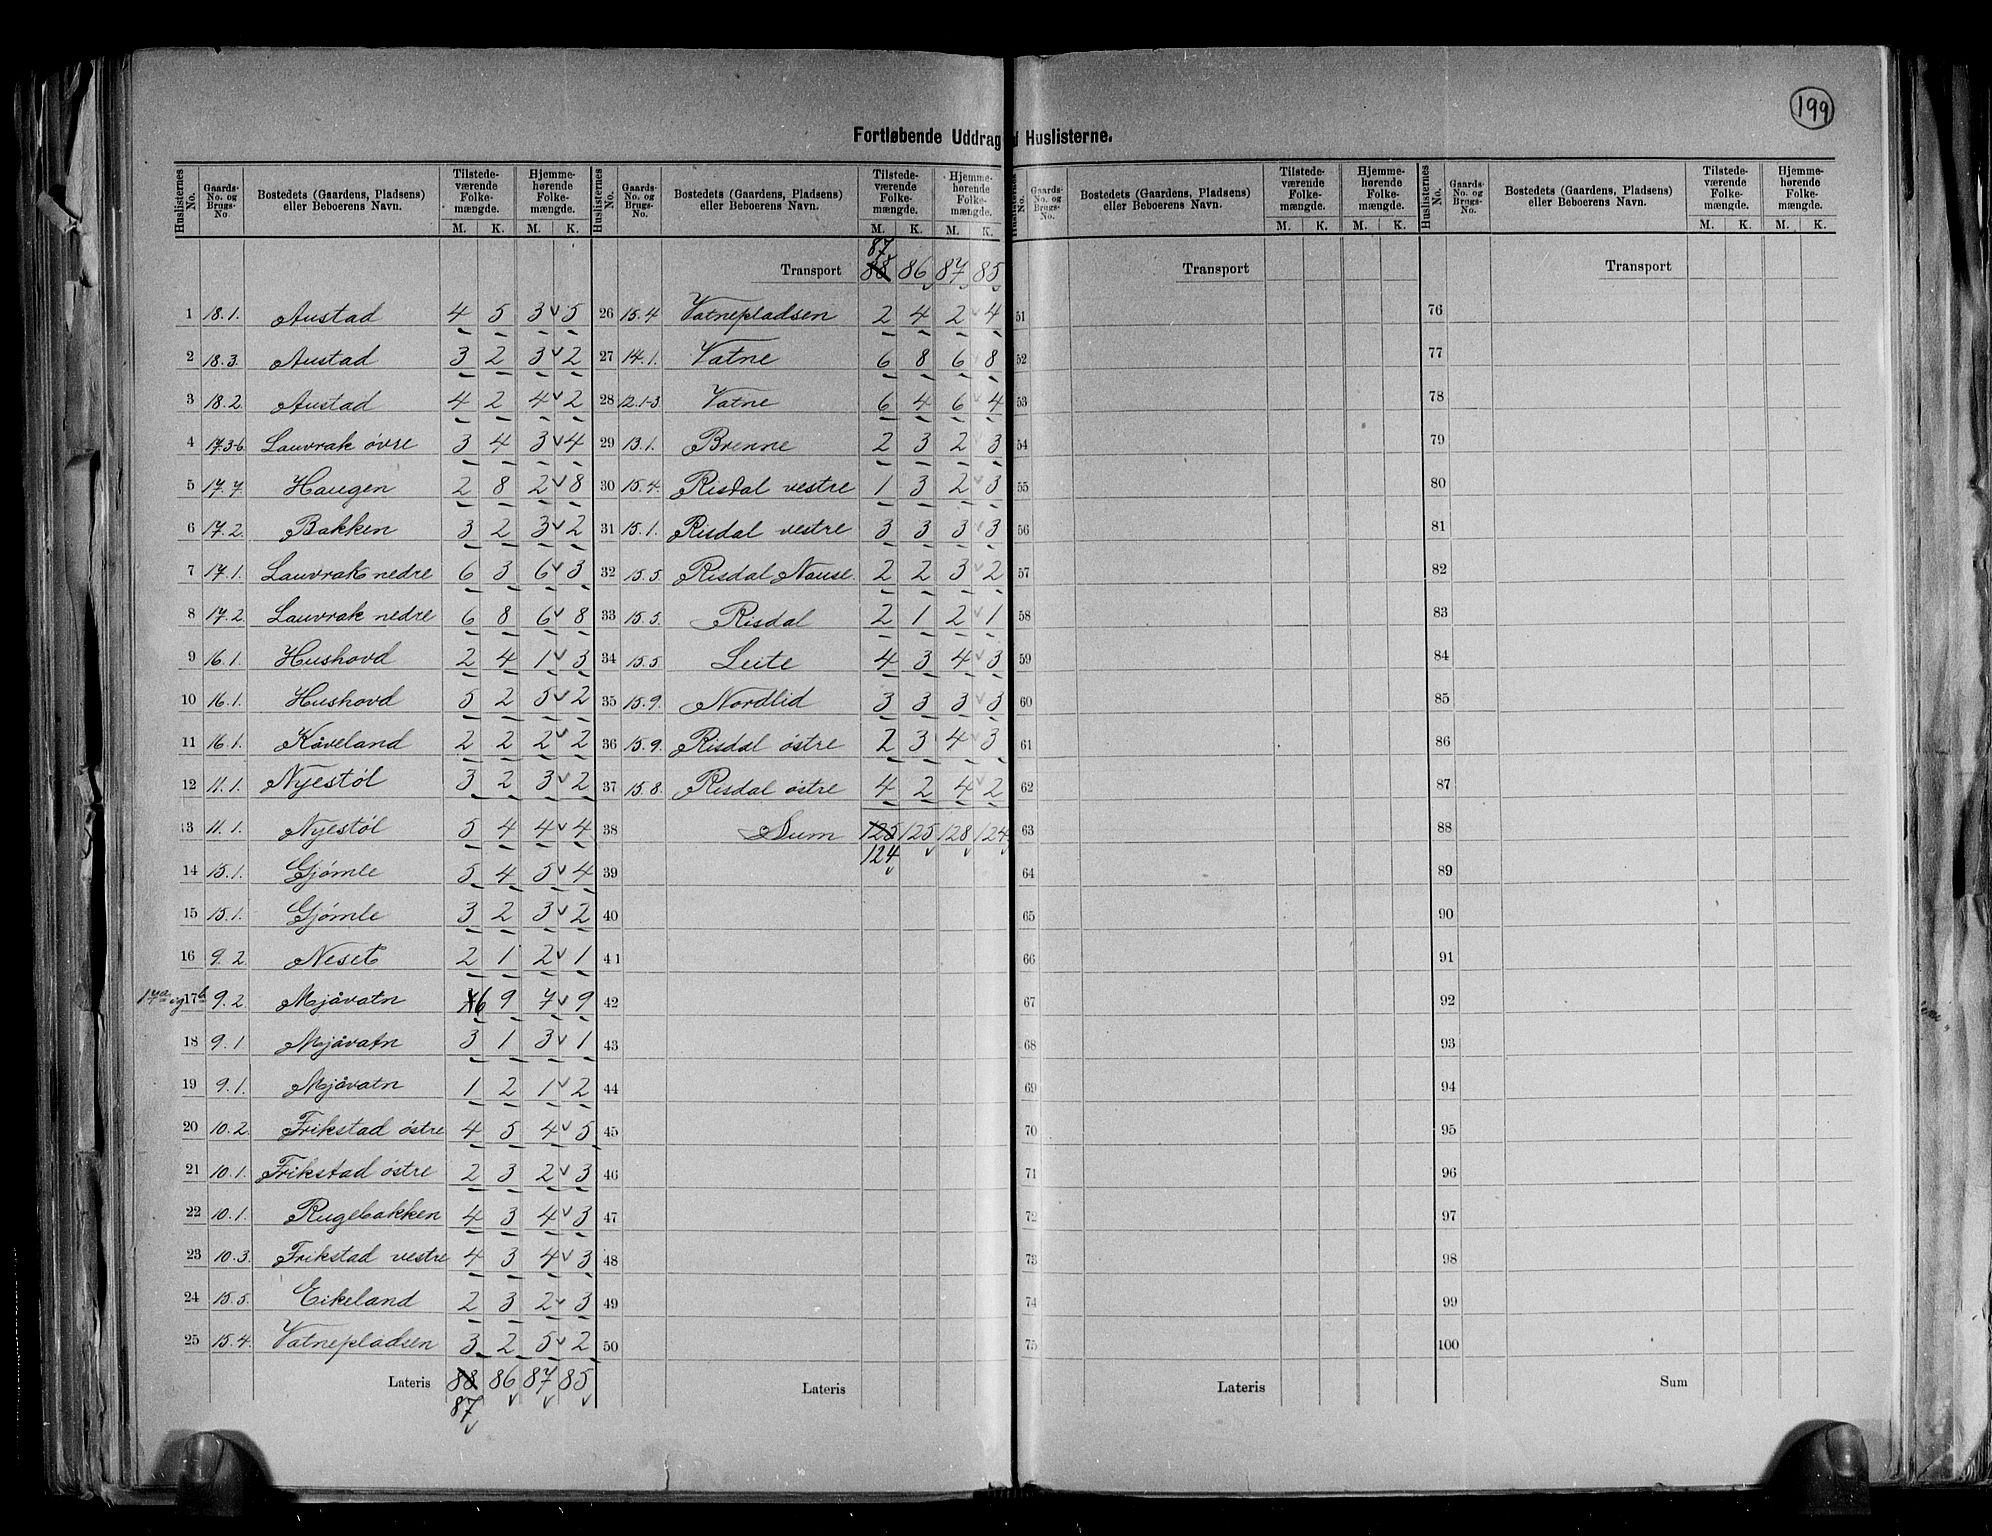 199
Fortløbende Uddrag Huslisterne.
Huslisternes No. Gaards-No. og Brugs-No. Bostedets (Gaardens, Pladsens) eller Beboerens Navn. Tilstedeværende Folkemængde. M. K. Hjemmehørende Folkemængde. M. K.
1 18.1. Austad 4 5 3 5
2 18.3. Austad 3 2 3 2
3 18.2. Austad 4 2 4 2
4 17.3-6 Lauvrak øvre 3 4 3 4
5 17.7 Haugen 2 8 2 8
6 17.2. Bakken 3 2 3 2
7 17.1. Lauvrak nedre 6 3 6 3
8 17.2. Lauvrak nedre 6 8 6 8
9 16.1. Hushovd 2 4 1 3
10 16.1. Hushovd 5 2 5 2
11 16.1. Kåveland 2 2 2 2
12 11.1. Nyestöl 3 2 3 2
13 11.1. Nyestöl 5 4 4 4
14 15.1. Gjömle 5 4 5 4
15 15.1. Gjömle 3 2 3 2
16 9.2. Neset 2 1 2 1
17a og 17b 9.2. Mjåvatn 6 9 7 9
18 9.1 Mjåvatn 3 1 3 1
19 9.1. Mjåvatn 1 2 1 2
20 10.2. Frikstad östre 4 5 4 5
21 10.1. Frikstad östre 2 3 2 3
22 10.1. Rugebakken 4 3 4 3
23 10.3. Frikstad vestre 4 3 4 3
24 15.5. Eikeland 2 3 2 3
25 15.4. Vatnepladsen 3 2 5 2
Lateris 88 86 87 85
87
Huslisternes No. Gaards-No. og Brugs-No. Bostedets (Gaardens, Pladsens) eller Beboerens Navn. Tilstedeværende Folkemængde. M. K. Hjemmehørende Folkemængde. M. K.
87
Transport 88 86 87 85
26 15.4 Vatnepladsen 2 4 2 4
27 14.1. Vatne 6 8 6 8
28 12.1-3 Vatne 6 4 6 4
29 13.1. Brenne 2 3 2 3
30 15.4. Risdal vestre 1 3 2 3
31 15.1. Risdal vestre 3 3 3 3
32 15.5 Risdal Nause. 2 2 3 2
33 15.5. Risdal 2 1 2 1
34 15.5 Leite 4 3 4 3
35 15.9. Nordlid 3 3 3 3
36 15.9. Risdal östre 2 3 4 3
37 15.8. Risdal östre 4 2 4 2
38 Sum 125 125 128 124
124
39
40
41
42
43
44
45
46
47
48
49
50
Lateris
Huslisternes No. Gaards-No. og Brugs-No. Bostedets (Gaardens, Pladsens) eller Beboerens Navn. Tilstedeværende Folkemængde. M. K. Hjemmehørende Folkemængde. M. K.
Transport
51
52
53
54
55
56
57
58
59
60
61
62
63
64
65
66
67
68
69
70
71
72
73
74
75
Lateris
Huslisternes No. Gaards-No. og Brugs-No. Bostedets (Gaardens, Pladsens) eller Beboerens Navn. Tilstedeværende Folkemængde. M. K. Hjemmehørende Folkemængde. M. K.
Transport
76
77
78
79
80
81
82
83
84
85
86
87
88
89
90
91
92
93
94
95
96
97
98
99
100
Sum